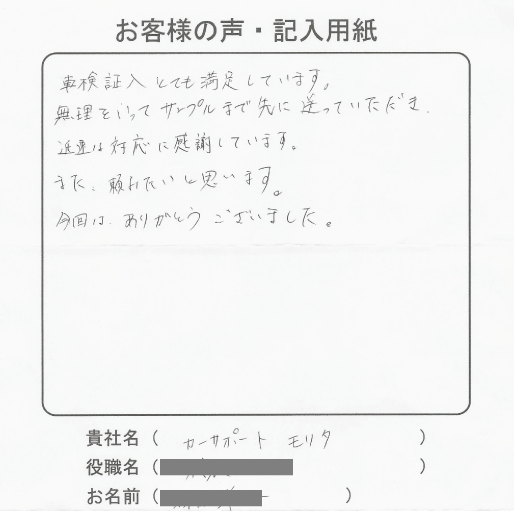 お客様の声・記入用紙
車検証入とても満足しています。
無理をいってサンプルまで先に送っていただき、
迅速な対応に感謝しています。
また、頼みたいと思います。
今回は、ありがとうございました。
貴社名（カーサポート モリタ）
役職名（ ）
お名前（ ）